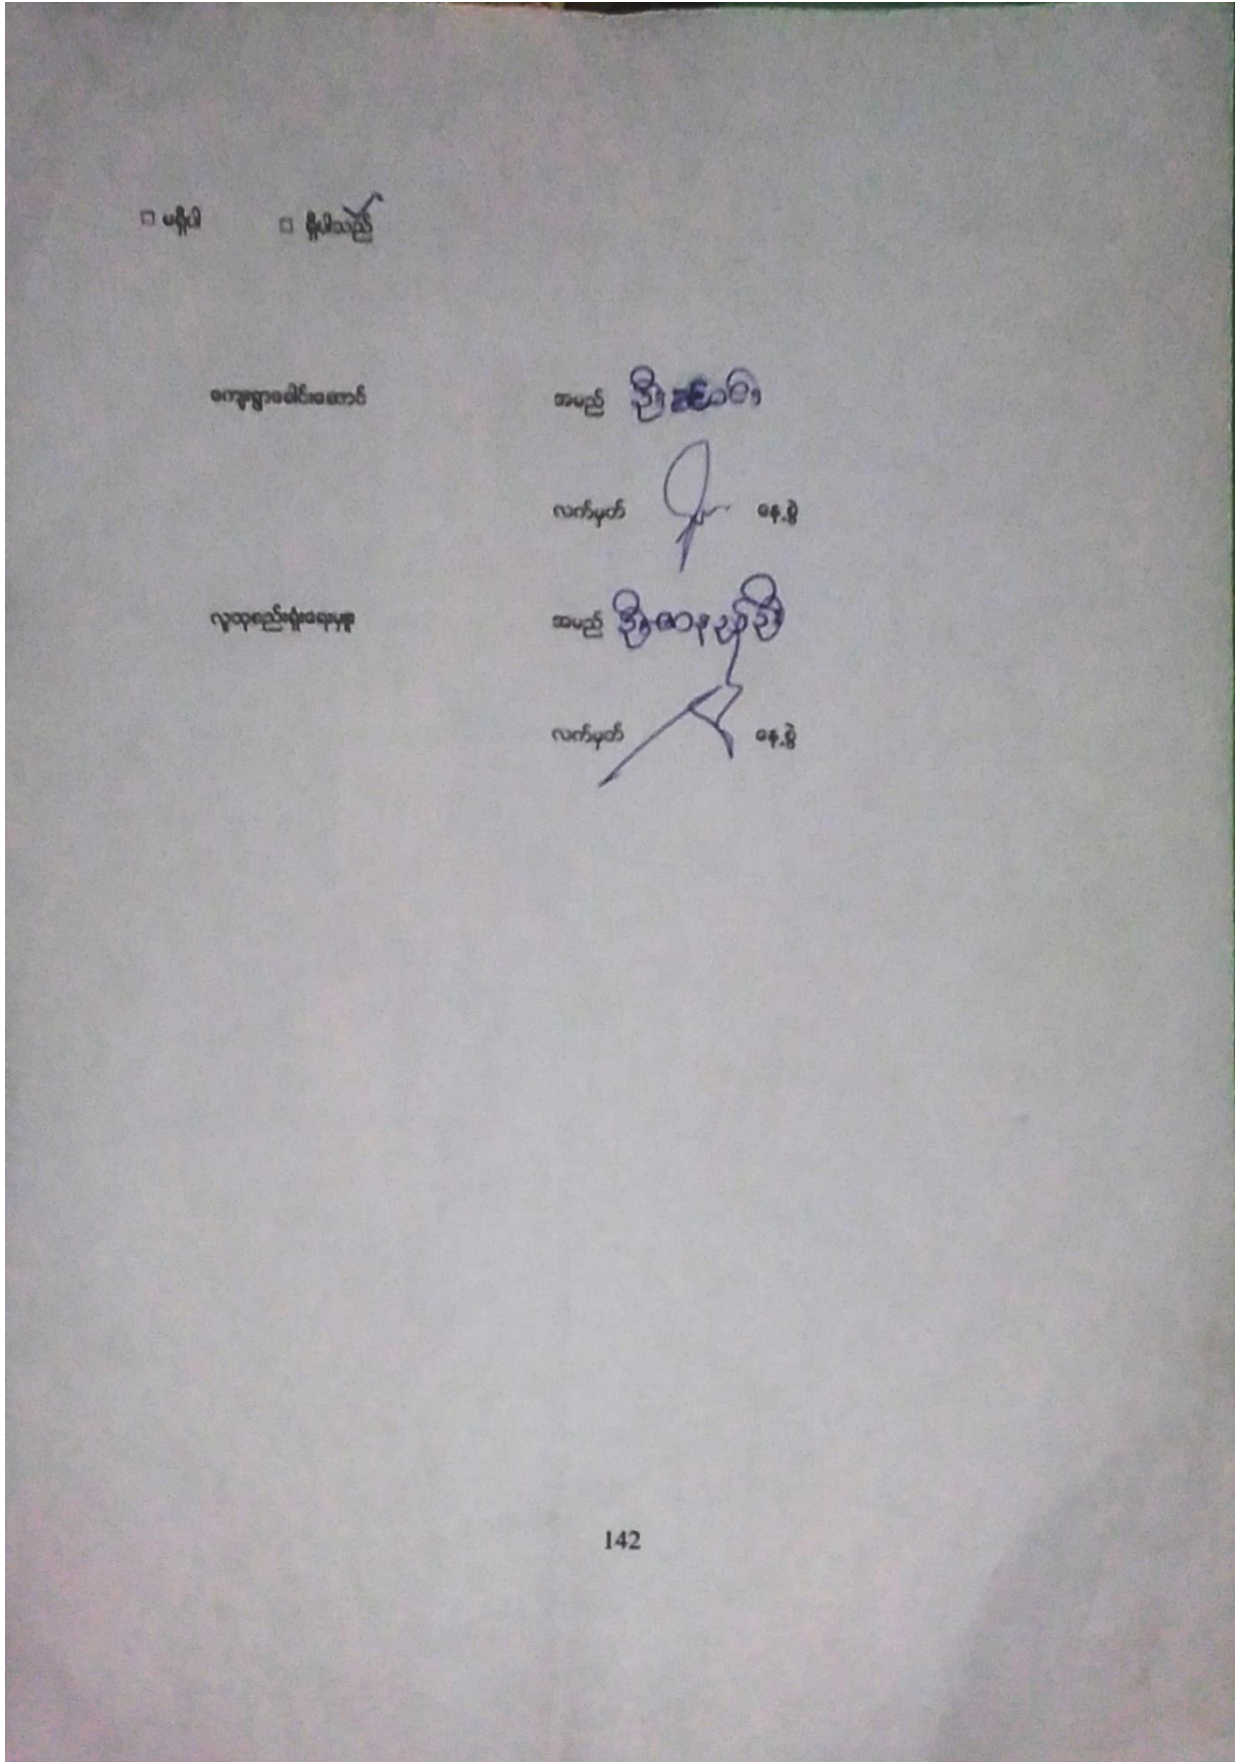 □ မရှိပါ □ ရှိပါသည်
ကျေးရွာခေါင်းဆောင် အမည် ဦး
လက်မှတ် နေ့စွဲ
လူထုစည်းရုံးရေးမှူး အမည် ဦး
လက်မှတ် နေ့စွဲ
142